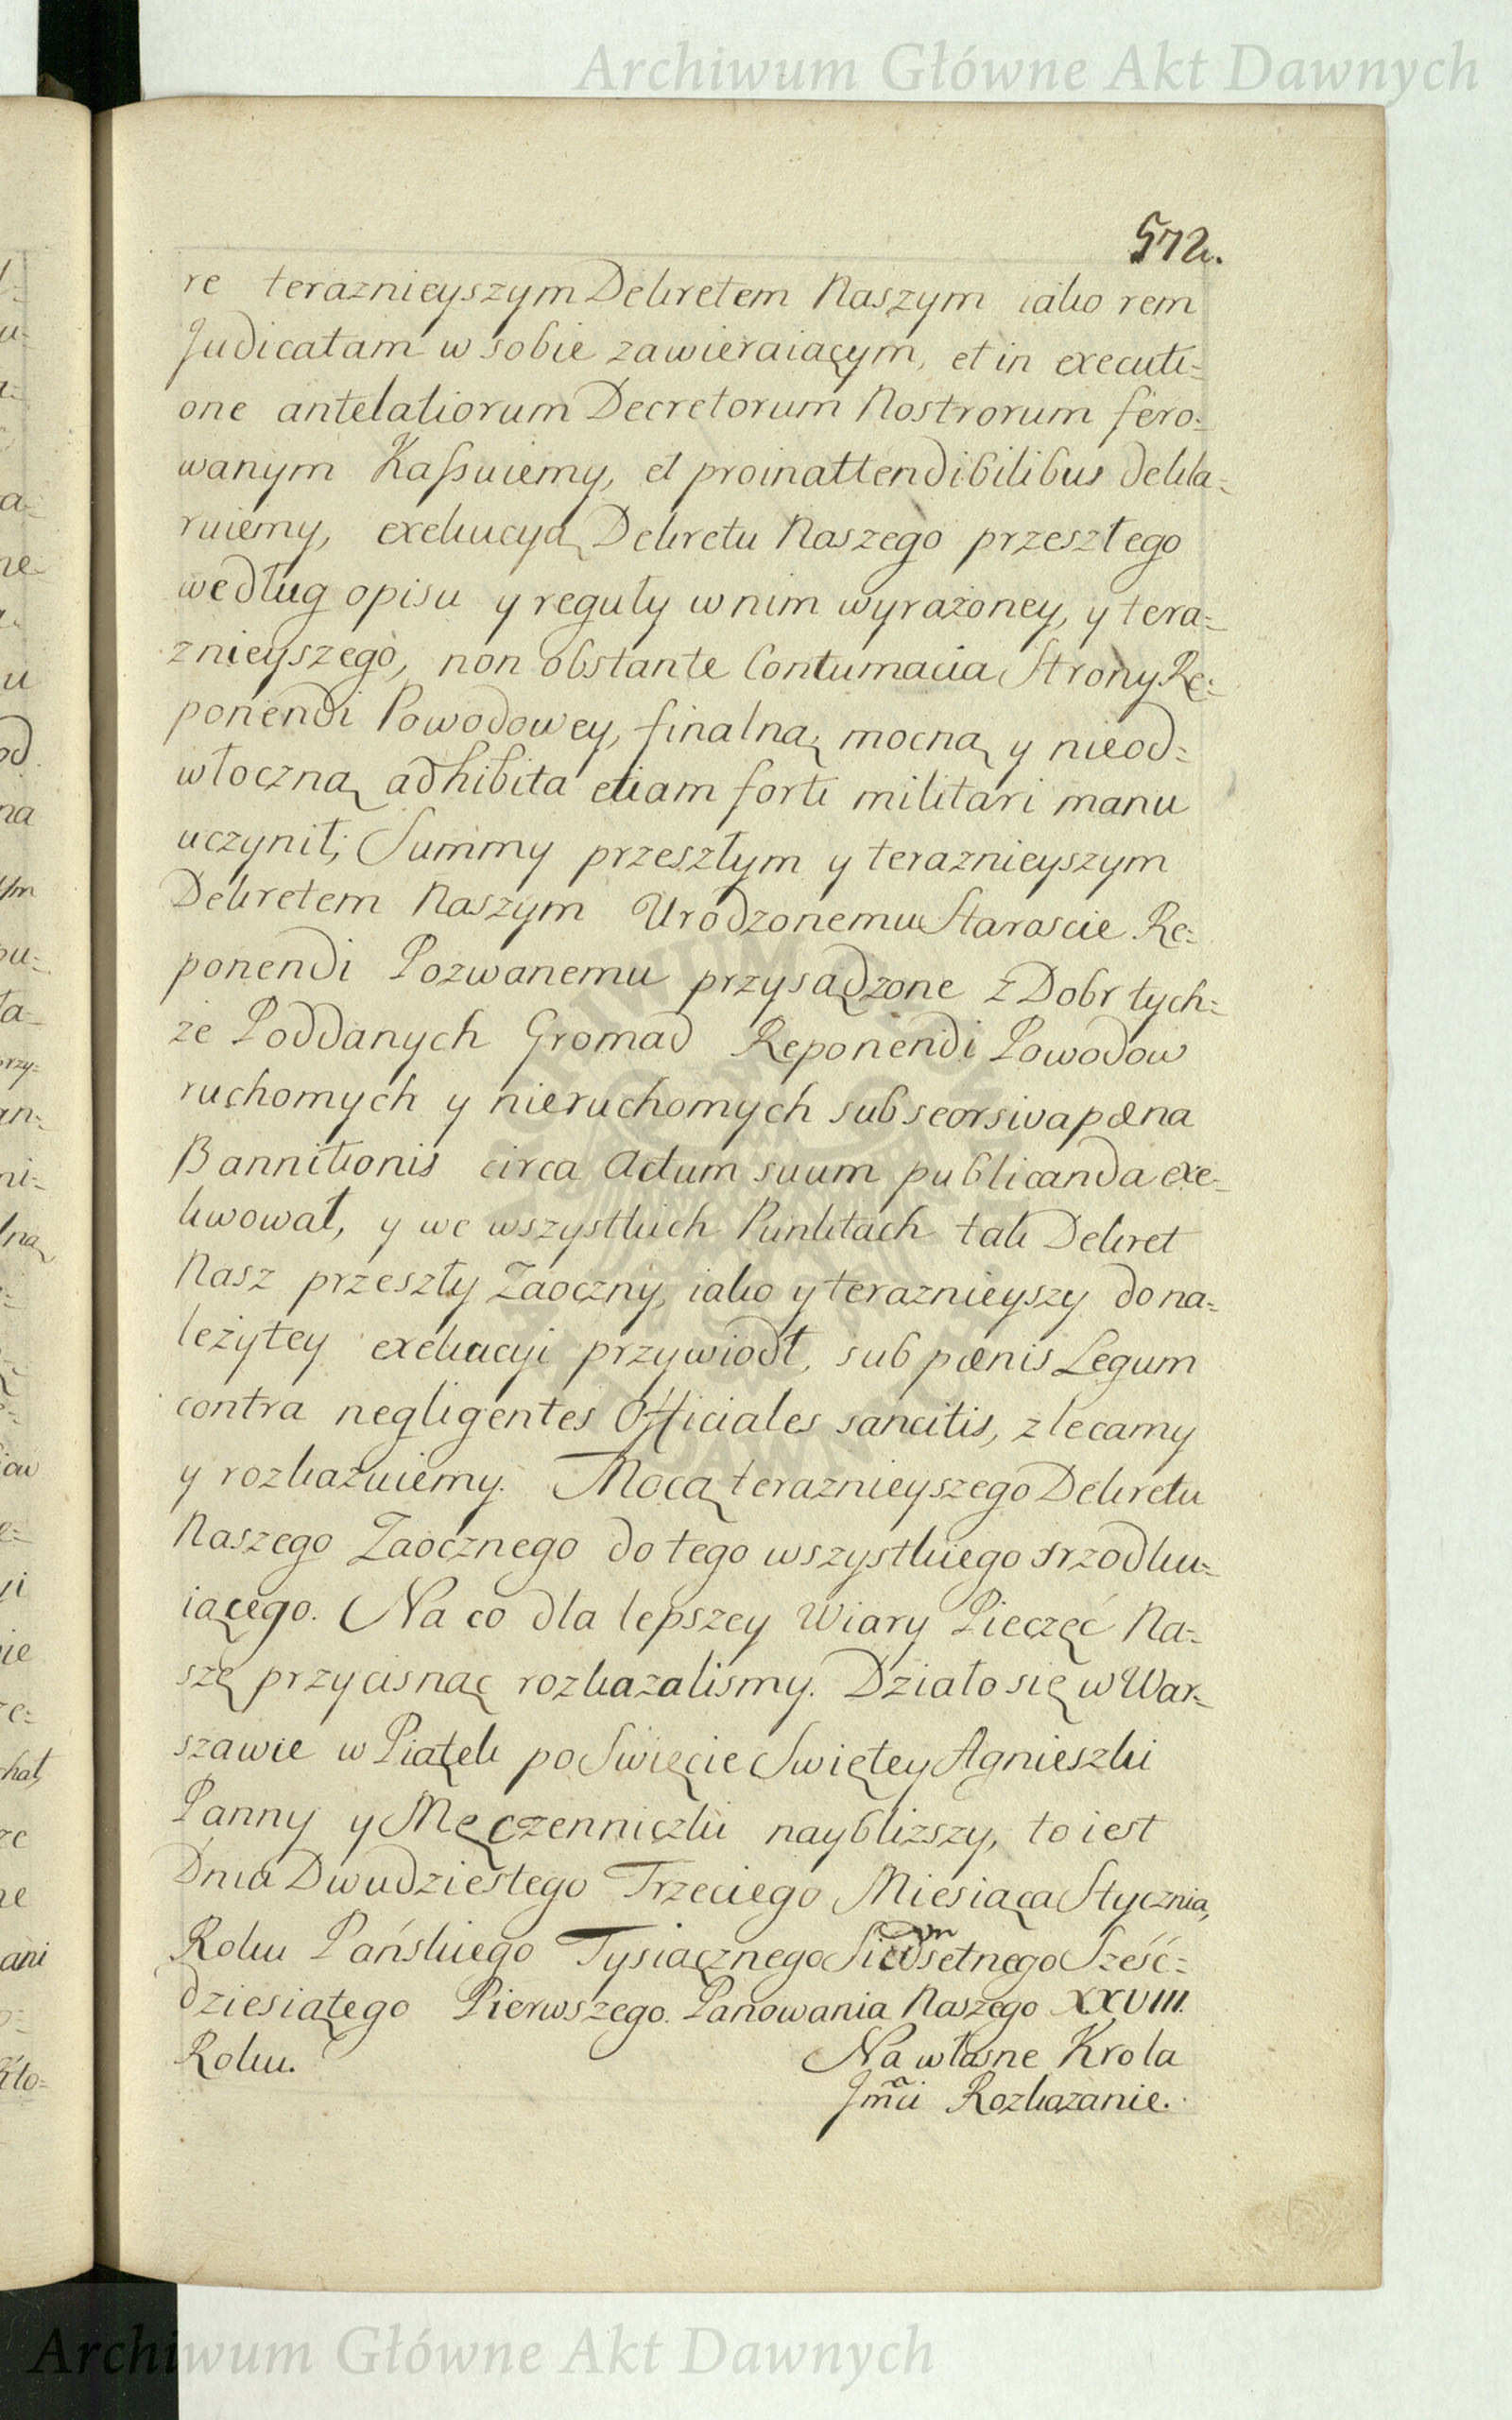 Archiwum Główne Akt Dawnych
572.
re teraznieyszym Dekretem Naszym iako rem
Judicatam w sobie zawieraiącym, et in executi=
one antelatiorum Decretorum Nostrorum fero=
wanym Kassuiemy, et pro inattendibilibus dekla=
ruiemy, exekucyą Dekretu Naszego przeszłego
według opisu y reguły w nim wyrażoney, y tera=
znieyszego, non obstante Contumacia Strony Re=
ponendi Powodowey, finalną, mocną y nieod=
włoczną adhibita etiam forti militari manu
uczynił; Summy przeszłym y teraznieyszym
Dekretem Naszym Urodzonemu Staroscie Re=
ponendi Pozwanemu przysądzone z Dobr tych=
ze Poddanych Gromad Reponendi Powodow
ruchomych y nieruchomych sub seorsiva pæna
Bannitionis circa Actum suum publicanda exe=
kwował, y we wszystkich Punktach tak Dekret
Nasz przeszły Zaoczny, iako y teraznieyszy do na=
leżytey exekucyi przywiodł, sub pænis Legum
contra negligentes Officiales sancitis, zlecamy
y rozkazuiemy. Mocą teraznieyszego Dekretu
Naszego Zaocznego do tego wszystkiego srzodku=
iącego. Na co dla lepszey Wiary Pieczęć Na=
szę przycisnąc rozkazalismy. Działo się w War=
szawie w Piątek po Swięcie Swiętey Agnieszki
Panny y Męczenniczki naybliższy, to iest
Dnia Dwudziestego Trzeciego Miesiąca Stycznia,
Roku Pańskiego Tysiącznego Siedmsetnego Sześć=
dziesiątego Pierwszego. Panowania Naszego XXVIII.
Roku.
Na własne Krola
Jmci Rozkazanie.
Archiwum Główne Akt Dawnych